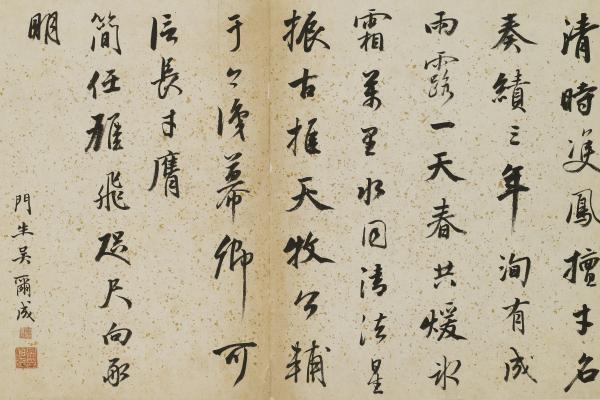 清時雙鳳擅才名
奏績三年洵有成
雨露一天春共煖氷
霜萬里水同清法星
振古推天牧公輔
于今幕卿可
信長才膺
簡任雄飛咫尺向承
明
門生吳爾成